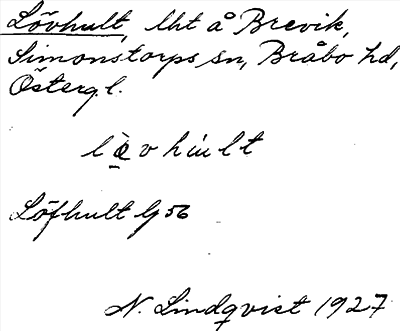 Lövhult, lht å Brevik,
Simonstorps sn, Bråbo hd,
Östergl.
lövhult
Löfhult G 56
N. Lindqvist 1927